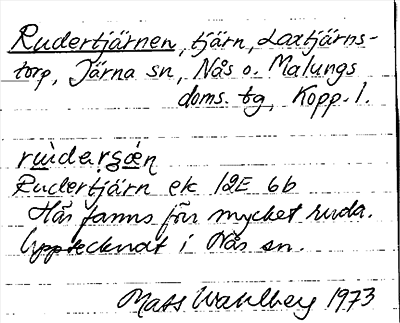 Rudertjärnen, tjärn, Laxtjärns-
torp, Järna sn, Nås o. Malungs
doms. tg, Kopp. l.
Rudertjärn ek 12E 6b
Här fanns förr mycket ruda.
Upptecknat i Nås sn.
Mats Wahlberg 1973